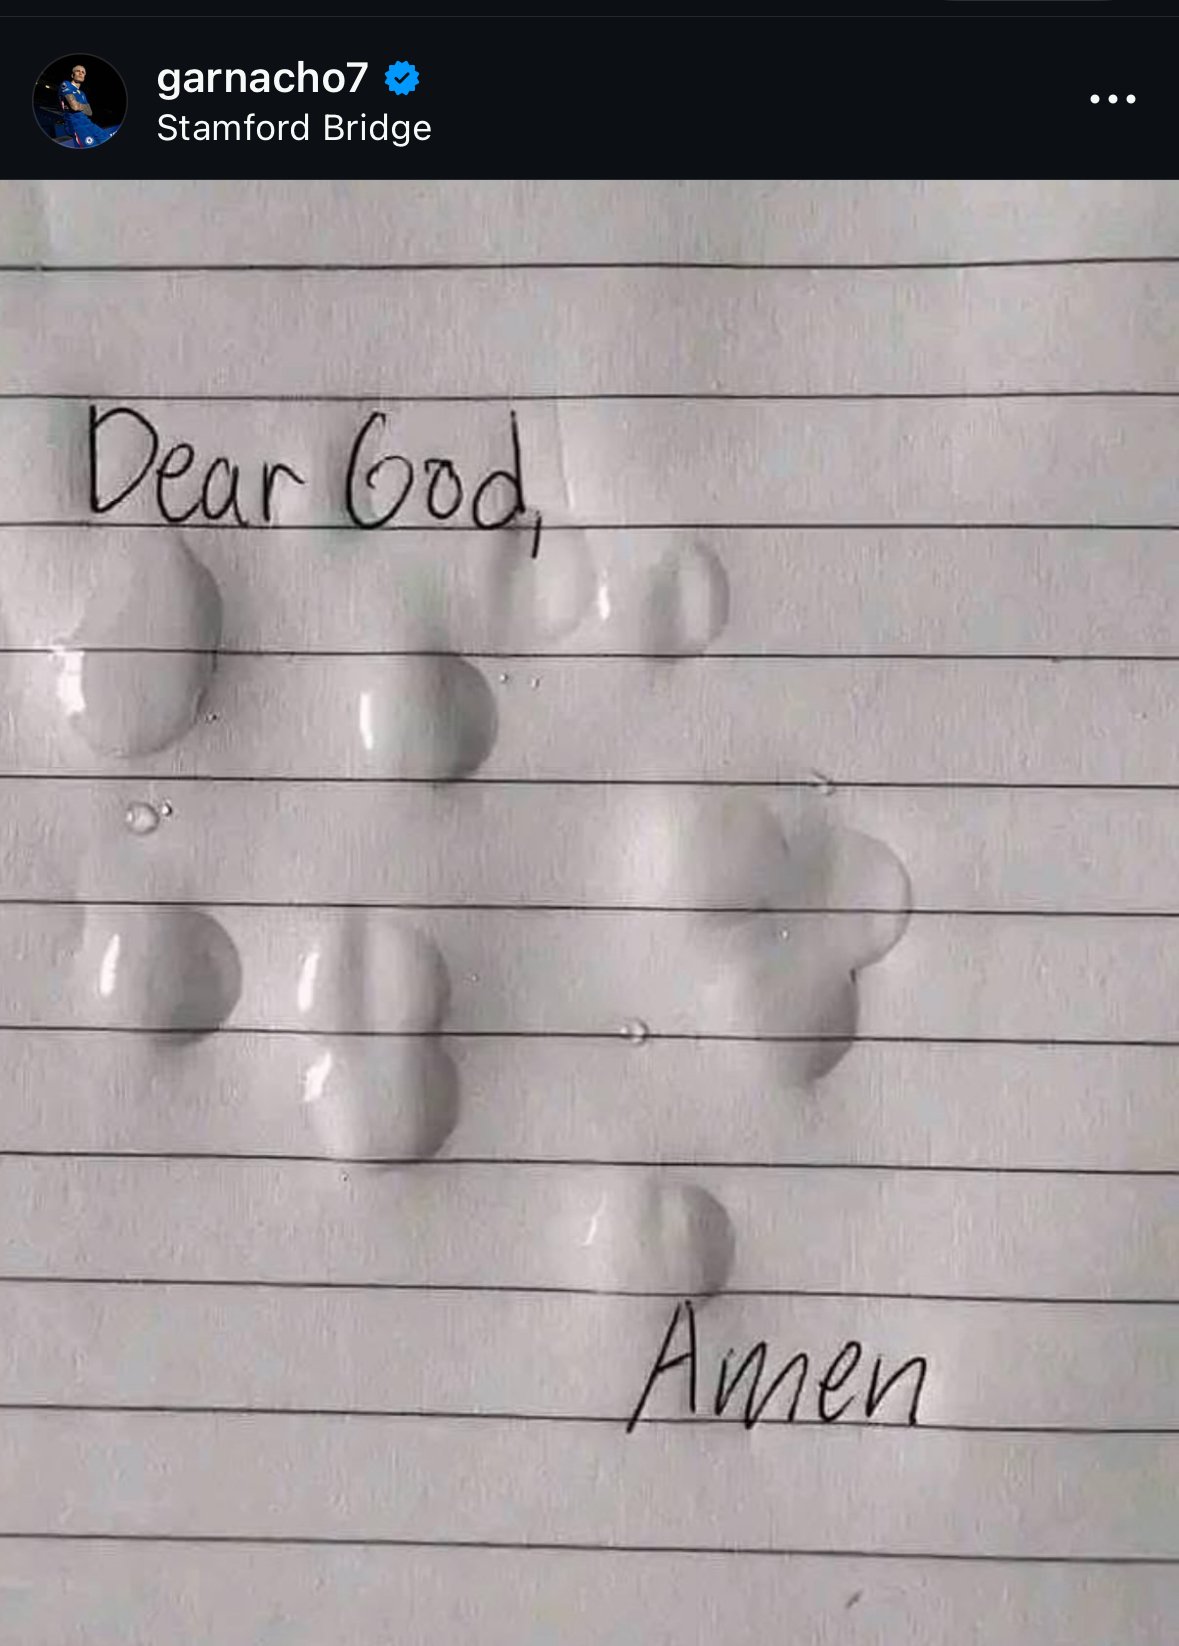 garnacho7
Stamford Bridge
Dear God,
Amen